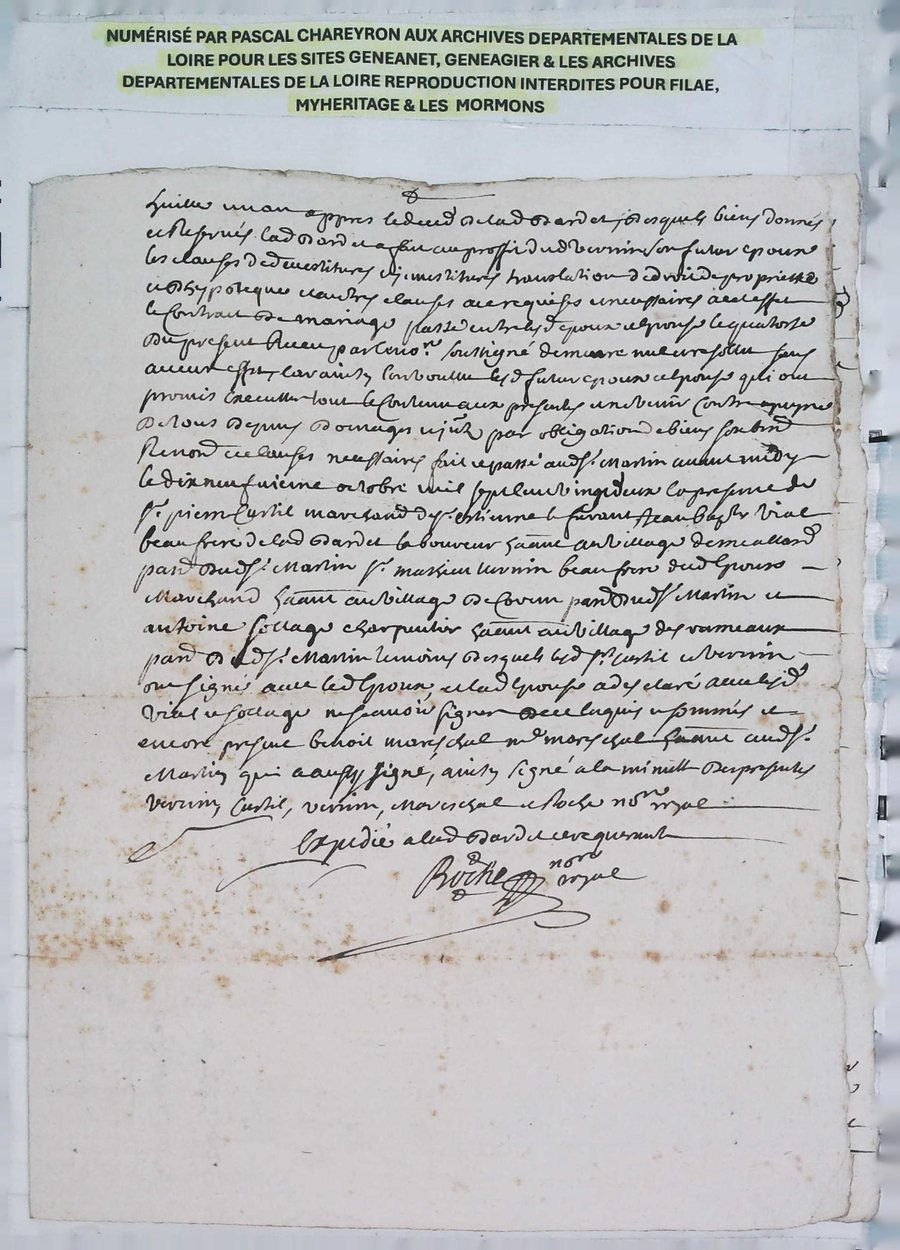 NUMÉRISÉ PAR PASCAL CHAREYRON AUX ARCHIVES DEPARTEMENTALES DE LA
LOIRE POUR LES SITES GENEANET, GENEAGIER & LES ARCHIVES
DEPARTEMENTALES DE LA LOIRE REPRODUCTION INTERDITES POUR FILAE,
MYHERITAGE & LES MORMONS
un an appres le deced de lad Dardet desquels biens donnés
et Reservés lad Dardet a fait au proffit dud Vernin son futur epoux
les clauses de devestitures investitures translation de droit de proprietté
et autres clauses requises et necessaires a cet effet
le Contrat de mariage passé entre lesd epoux et epouse le quatorze
du present Receu par le no.re soussigné demeure nul et resollu sans
aucun effet lesd futur epoux et epouse qui ont
promis executter tout le Contenu aux presentes
de tous depens domages par obligation de biens
Renond et clauses necessaires fait et passé aud St Martin avant midy
le dix neufvieme octobre mil sept cent vingt deux en presence de
Sr pierre Curtil marchand de St Estienne Jean bapte Vial
beau frere de lad Dardet laboureur au village de
parr dud St Martin Sr mathieu Vernin beau frere dud Epoux
Marchand au village de parr dud St Martin et
antoine sottage charpentier au village des rameaux
parr dud St Martin temoins desquels lesd Srs Curtil et Vernin
ont signé avec led Epoux, et lad Epouse a declaré avec lesd
Vial et sottage ne scavoir signer de ce enquis et sommés et
encore present benoit mareschal md mareschal aud St
Martin qui a aussy signé, ainsy signé a la minutte des presentes
vernin, Curtil, vernin, Mareschal et Roche nore royal
Expedié a lad Dardet ce requerant
Roche nore
royal